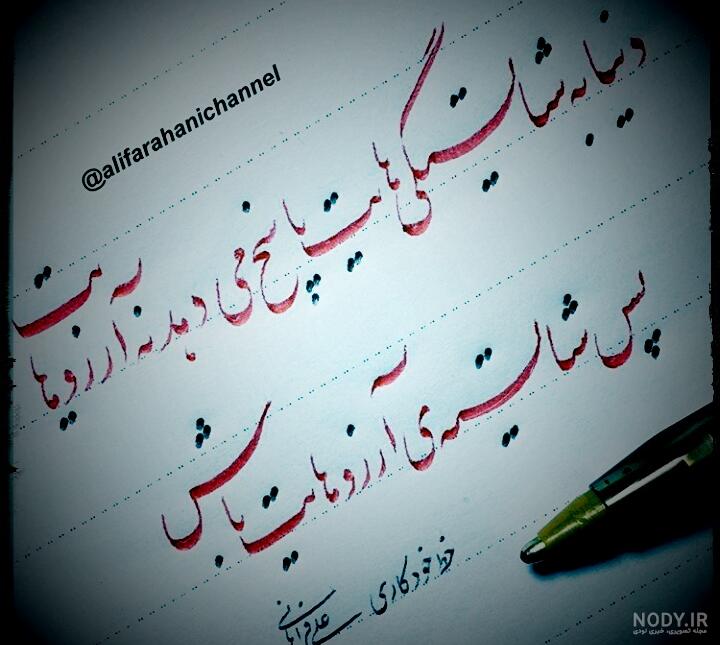 @alifarahanichannel
دنیا به شایستگی هایت پاسخ می دهد نه آرزوهایت
پس شایسته ی آرزوهایت باش
خط خودکاری
علی فراهانی
NODY.IR
مجله تصویری، خبری نودی